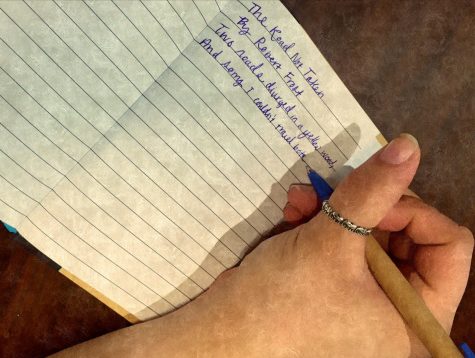 The Road Not Taken
By Robert Frost
Two roads diverged in a yellow wood,
And sorry I couldn't travel both